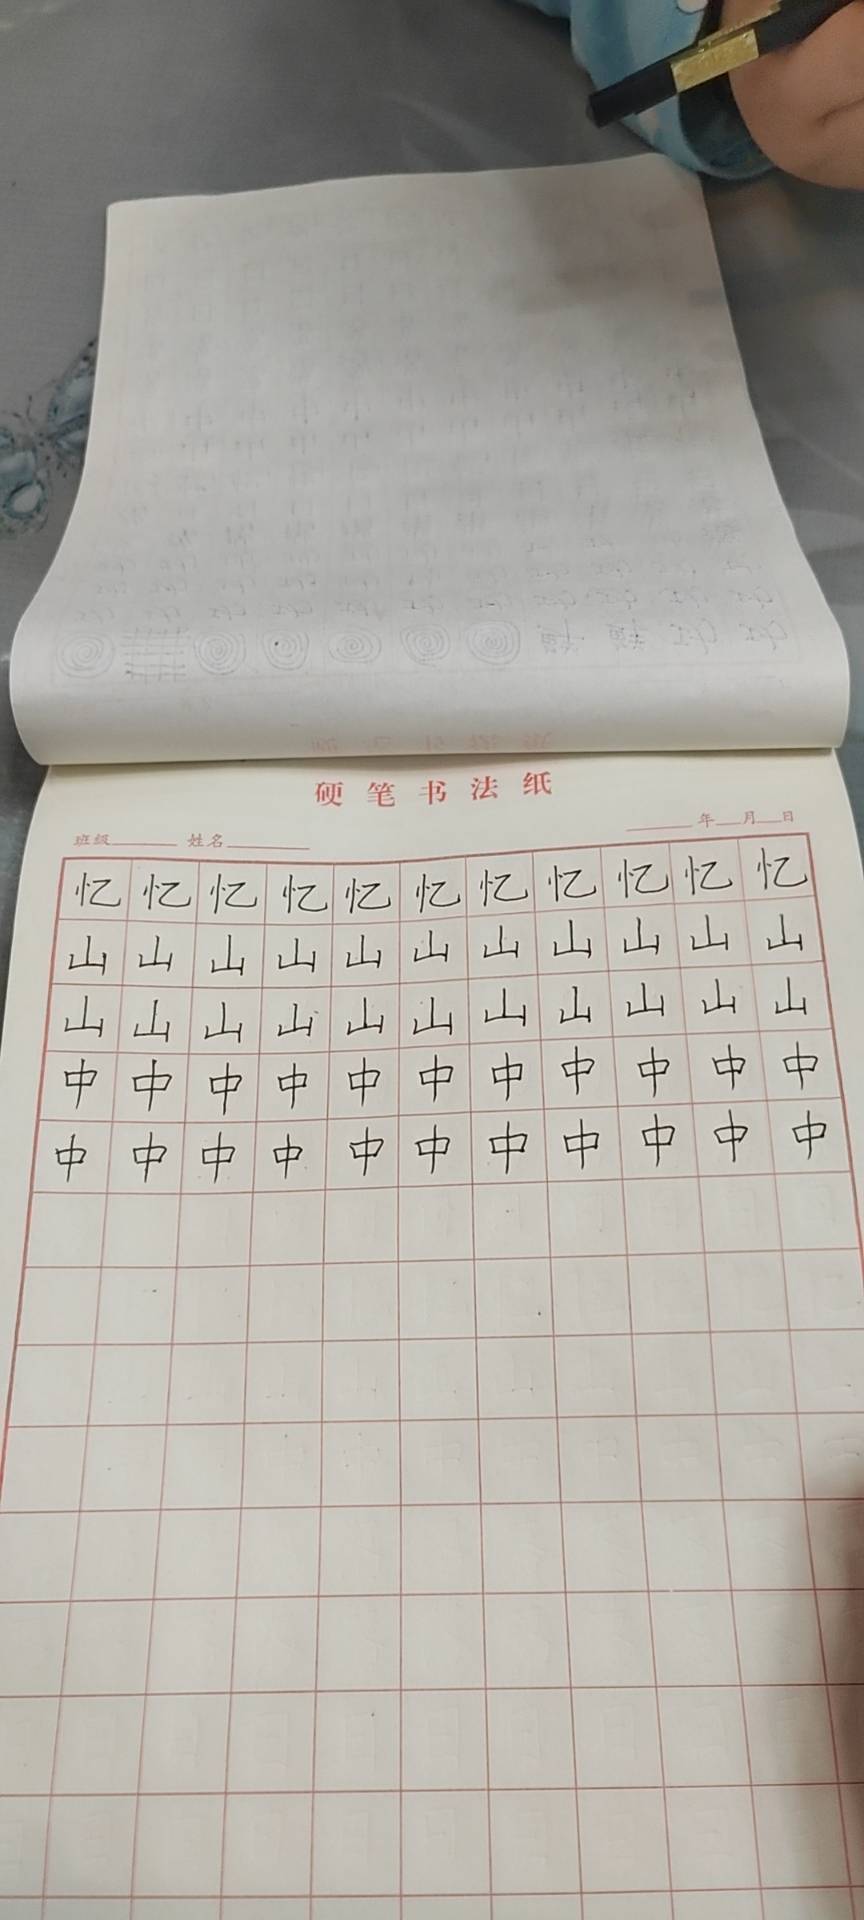 硬笔书法纸
班级 姓名 年 月 日
忆 忆 忆 忆 忆 忆 忆 忆 忆 忆 忆
山 山 山 山 山 山 山 山 山 山 山
山 山 山 山 山 山 山 山 山 山 山
中 中 中 中 中 中 中 中 中 中 中
中 中 中 中 中 中 中 中 中 中 中